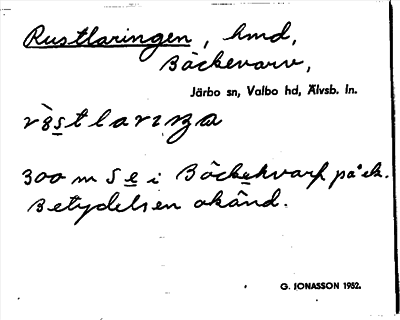 Rustlaringen, hmd,
Bäckevarv,
Järbo sn, Valbo hd, Älvsb. ln.
300 m S e i Bäckehvarf på ek.
Betydelsen okänd.
G. JONASSON 1952.